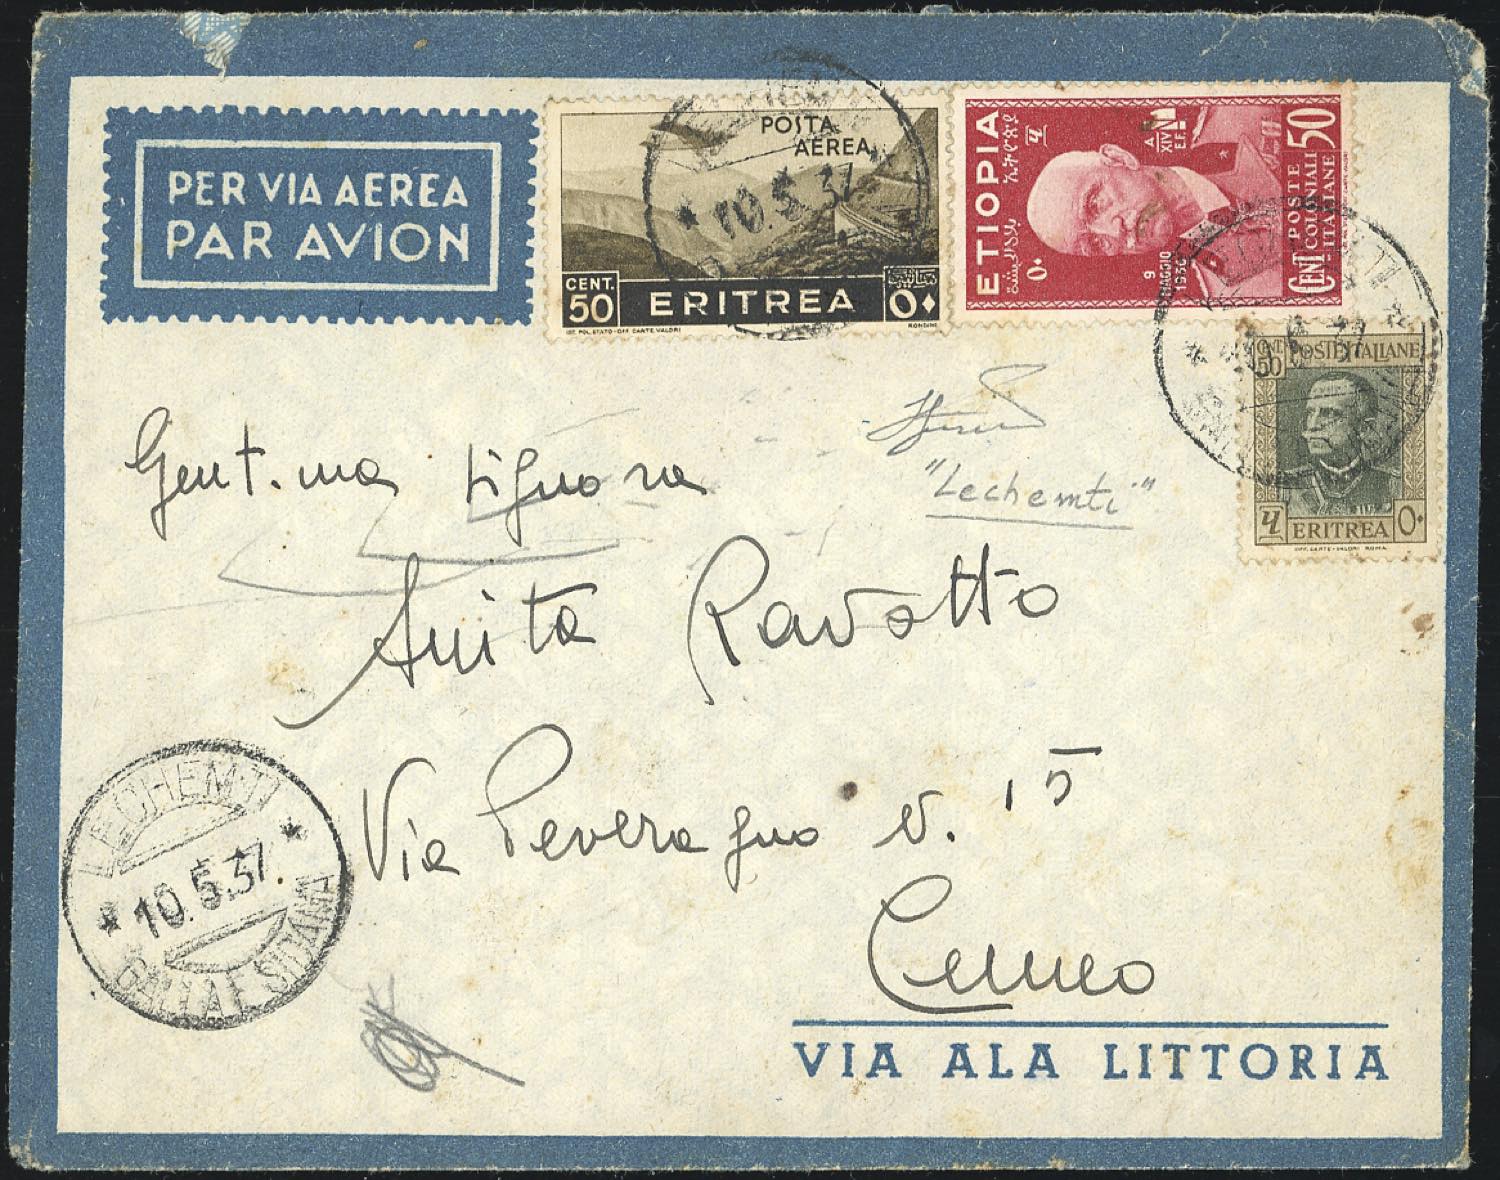 PER VIA AEREA
PAR AVION
POSTA
AEREA
10.5.37
CENT.
50
ERITREA
٥٠
IST. POL. STATO - OFF. CARTE. VALORI
RONDINI
ETIOPIA
ኢትዮጵያ
፶
٥٠
A.
XIV
E.F.
9
MAGGIO
1936
POSTE
COLONIALI
ITALIANE
CENT 50
CENT
50
POSTE ITALIANE
፶ ERITREA ٥٠
OFF. CARTE-VALORI ROMA
"Lechemti"
Gent.ma Signora
Anita Ravotto
Via Peveragno n. 15
Cuneo
LECHEMTI
10.5.37.
GALLA E SIDAMA
VIA ALA LITTORIA